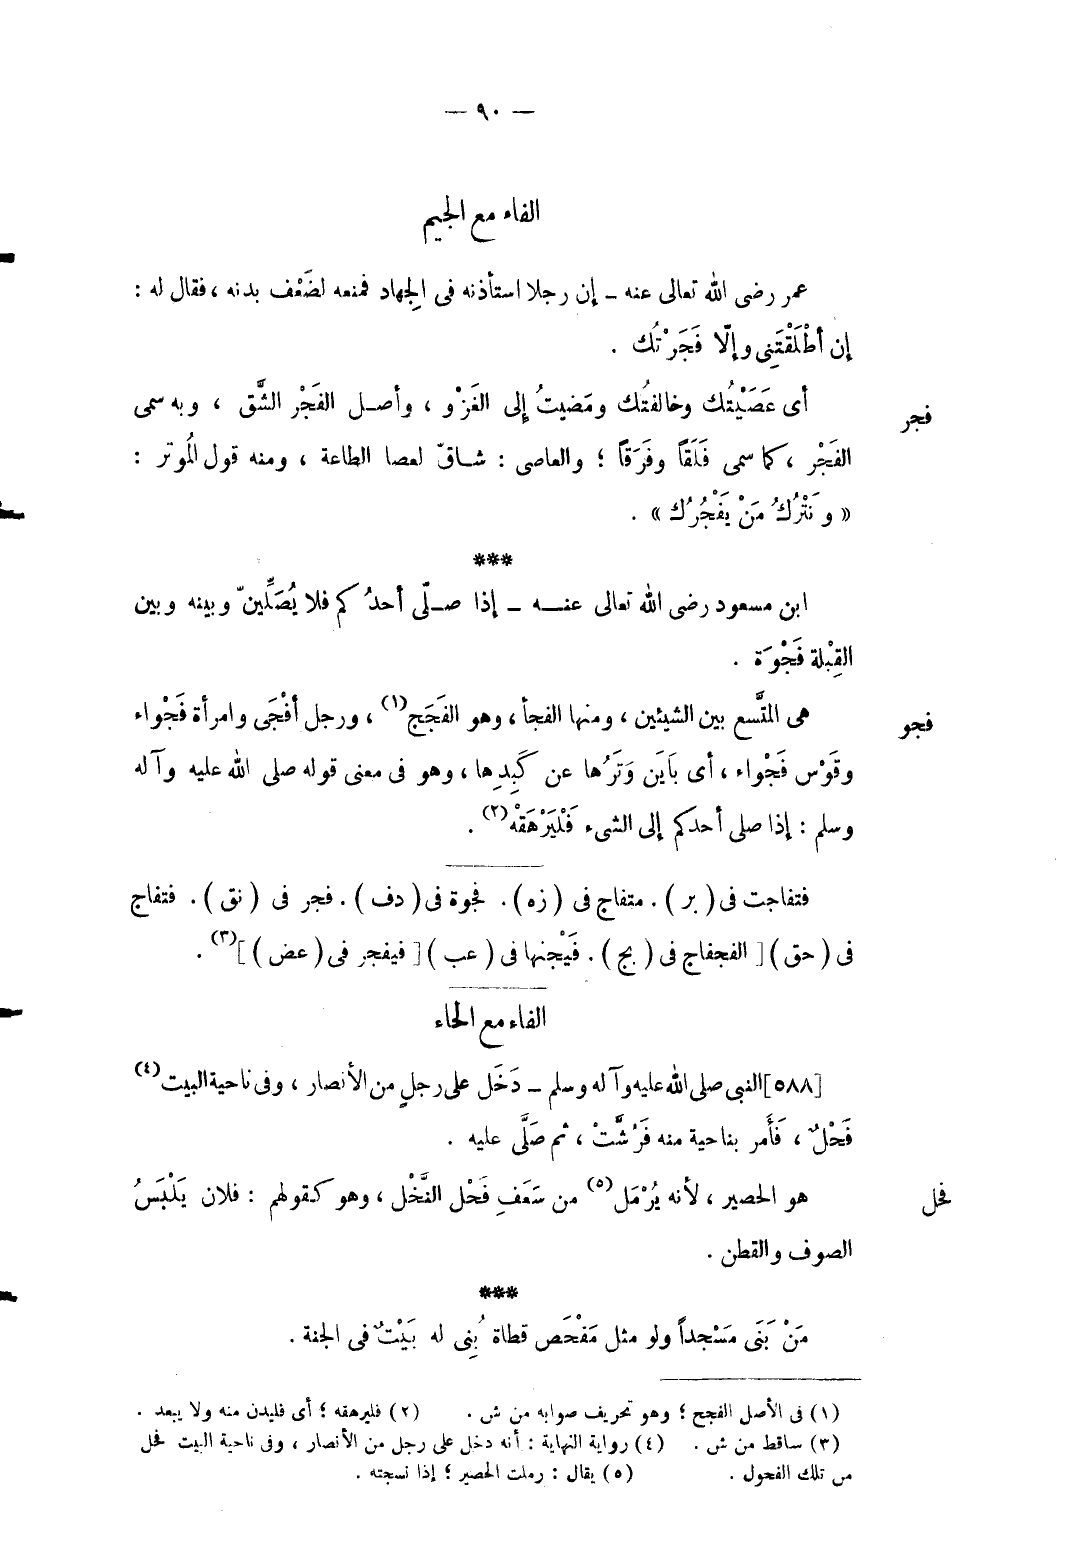 — ٩٠ —
الفاء مع الجيم
عمر رضى الله تعالى عنه – إن رجلا استأذنه فى الجِهاد فمنعه لضَعْف بدنه ، فقال له :
إن أطْلَقْتَنِى وإلّا فَجَرْتُك .
فجر
أى عَصَيْتُك وخالفتُك ومَضيتُ إلى الغَزْو ، وأصـل الفَجْر الشَّق ، وبه سمى
الفَجْر ، كما سمى فَلَقاً وفَرَقاً ؛ والعاصى : شـاقّ لعصا الطاعة ، ومنه قول المُوتر :
« ونَتْرُكُ مَنْ يَفْجُرُك » .
***
ابن مسعود رضى الله تعالى عنـــه – إذا صـلّى أحدُكم فلا يُصَلِّينّ وبينه وبين
القِبْلة فَجْوَة .
فجو
هى المتَّسع بين الشيئين ، ومنها الفجأ ، وهو الفَجَج(١) ، ورجل أفْجَى وامرأة فَجْواء
وقَوْس فَجْواء ، أى بَايَن وَتَرُها عن كَبِدِها ، وهو فى معنى قوله صلى الله عليه وآله
وسلم : إذا صلى أحدكم إلى الشىء فَلْيَرْهَقْه(٢) .
فتفاجت فى ( بر ) . متفاج فى ( زه ) . فجوة فى ( دف ) . فجر فى ( نق ) . فتفاج
فى ( حق ) [ الفجفاج فى ( بج ) . فَيْجْنها فى ( عب ) [ فيفجر فى ( عض ) ](٣) .
الفاء مع الحاء
[٥٨٨] النبى صلى الله عليه وآله وسلم – دَخَل على رجلٍ من الأنصار ، وفى ناحية البيت(٤)
فَحْلٌ ، فَأَمر بناحية منه فَرُشَّتْ ، ثم صَلَّى عليه .
فحل
هو الحصير ، لأنه يُرْمَل(٥) من سَعَفِ فَحْل النَّخْل ، وهو كقولهم : فلان يَلْبَسُ
الصوف والقطن .
***
مَنْ بَنَى مَسْجداً ولو مثل مَفْحَص قطاة بُنِى له بَيْتٌ فى الجنة .
(١) فى الأصل الفجح ؛ وهو تحريف صوابه من ش . (٢) فليرهقه ؛ أى فليدن منه ولا يبعد .
(٣) ساقط من ش . (٤) رواية النهاية : أنه دخل على رجل من الأنصار ، وفى ناحية البيت فحل
من تلك الفحول . (٥) يقال : رملت الحصير ؛ إذا نسجته .